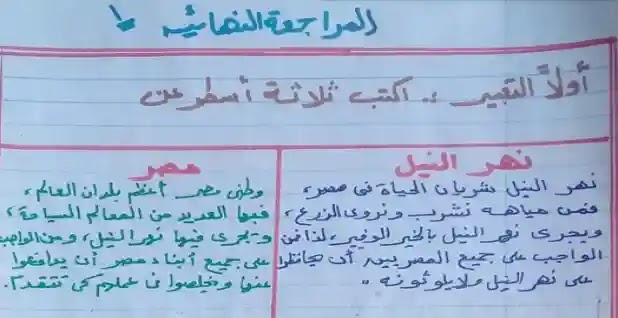 المراجعة النهائية
أولاً التعبير :. اكتب ثلاثة أسطر عن
نهر النيل
نهر النيل شريان الحياة فى مصر،
فمن مياهه نشرب ونروى الزرع،
ويجرى نهر النيل بالخير الوفير، لذا فمن
الواجب على جميع المصريين أن يحافظوا
على نهر النيل ولا يلوثونه ..
مصر
وطنى مصر أعظم بلدان العالم،
فبها العديد من المعالم السياحة،
ويجرى فيها نهر النيل، ومن الواجب
على جميع أبناء مصر أن يدافعوا
عنها ويخلصوا فى عملهم كى تتقدم.